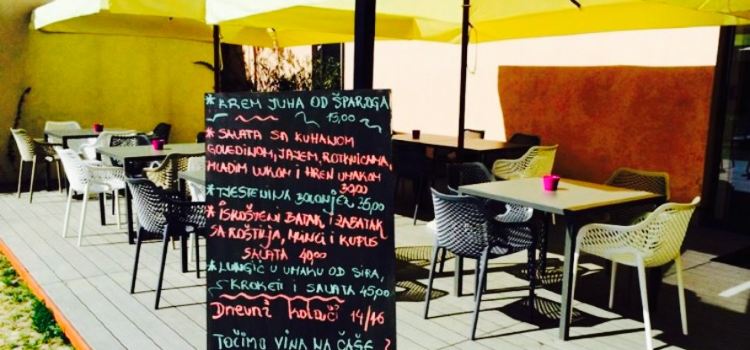 * KREM JUHA OD ŠPAROGA
15,00
* SALATA SA KUHANOM
GOVEDINOM, JAJEM, ROTKVICAMA,
MLADIM LUKOM I HREN UMAKOM
39,00
* TJESTENINA BOLONJEZ 25,00
* IŠKOŠTENI BATAK I ZABATAK
SA ROŠTILJA, MLINCI I KUPUS
SALATA 40,00
* LUNGIĆ U UMAKU OD SIRA,
KROKETI I SALATA 45,00
DNEVNI KOLAČI 14/16
TOČIMO VINA NA ČAŠE